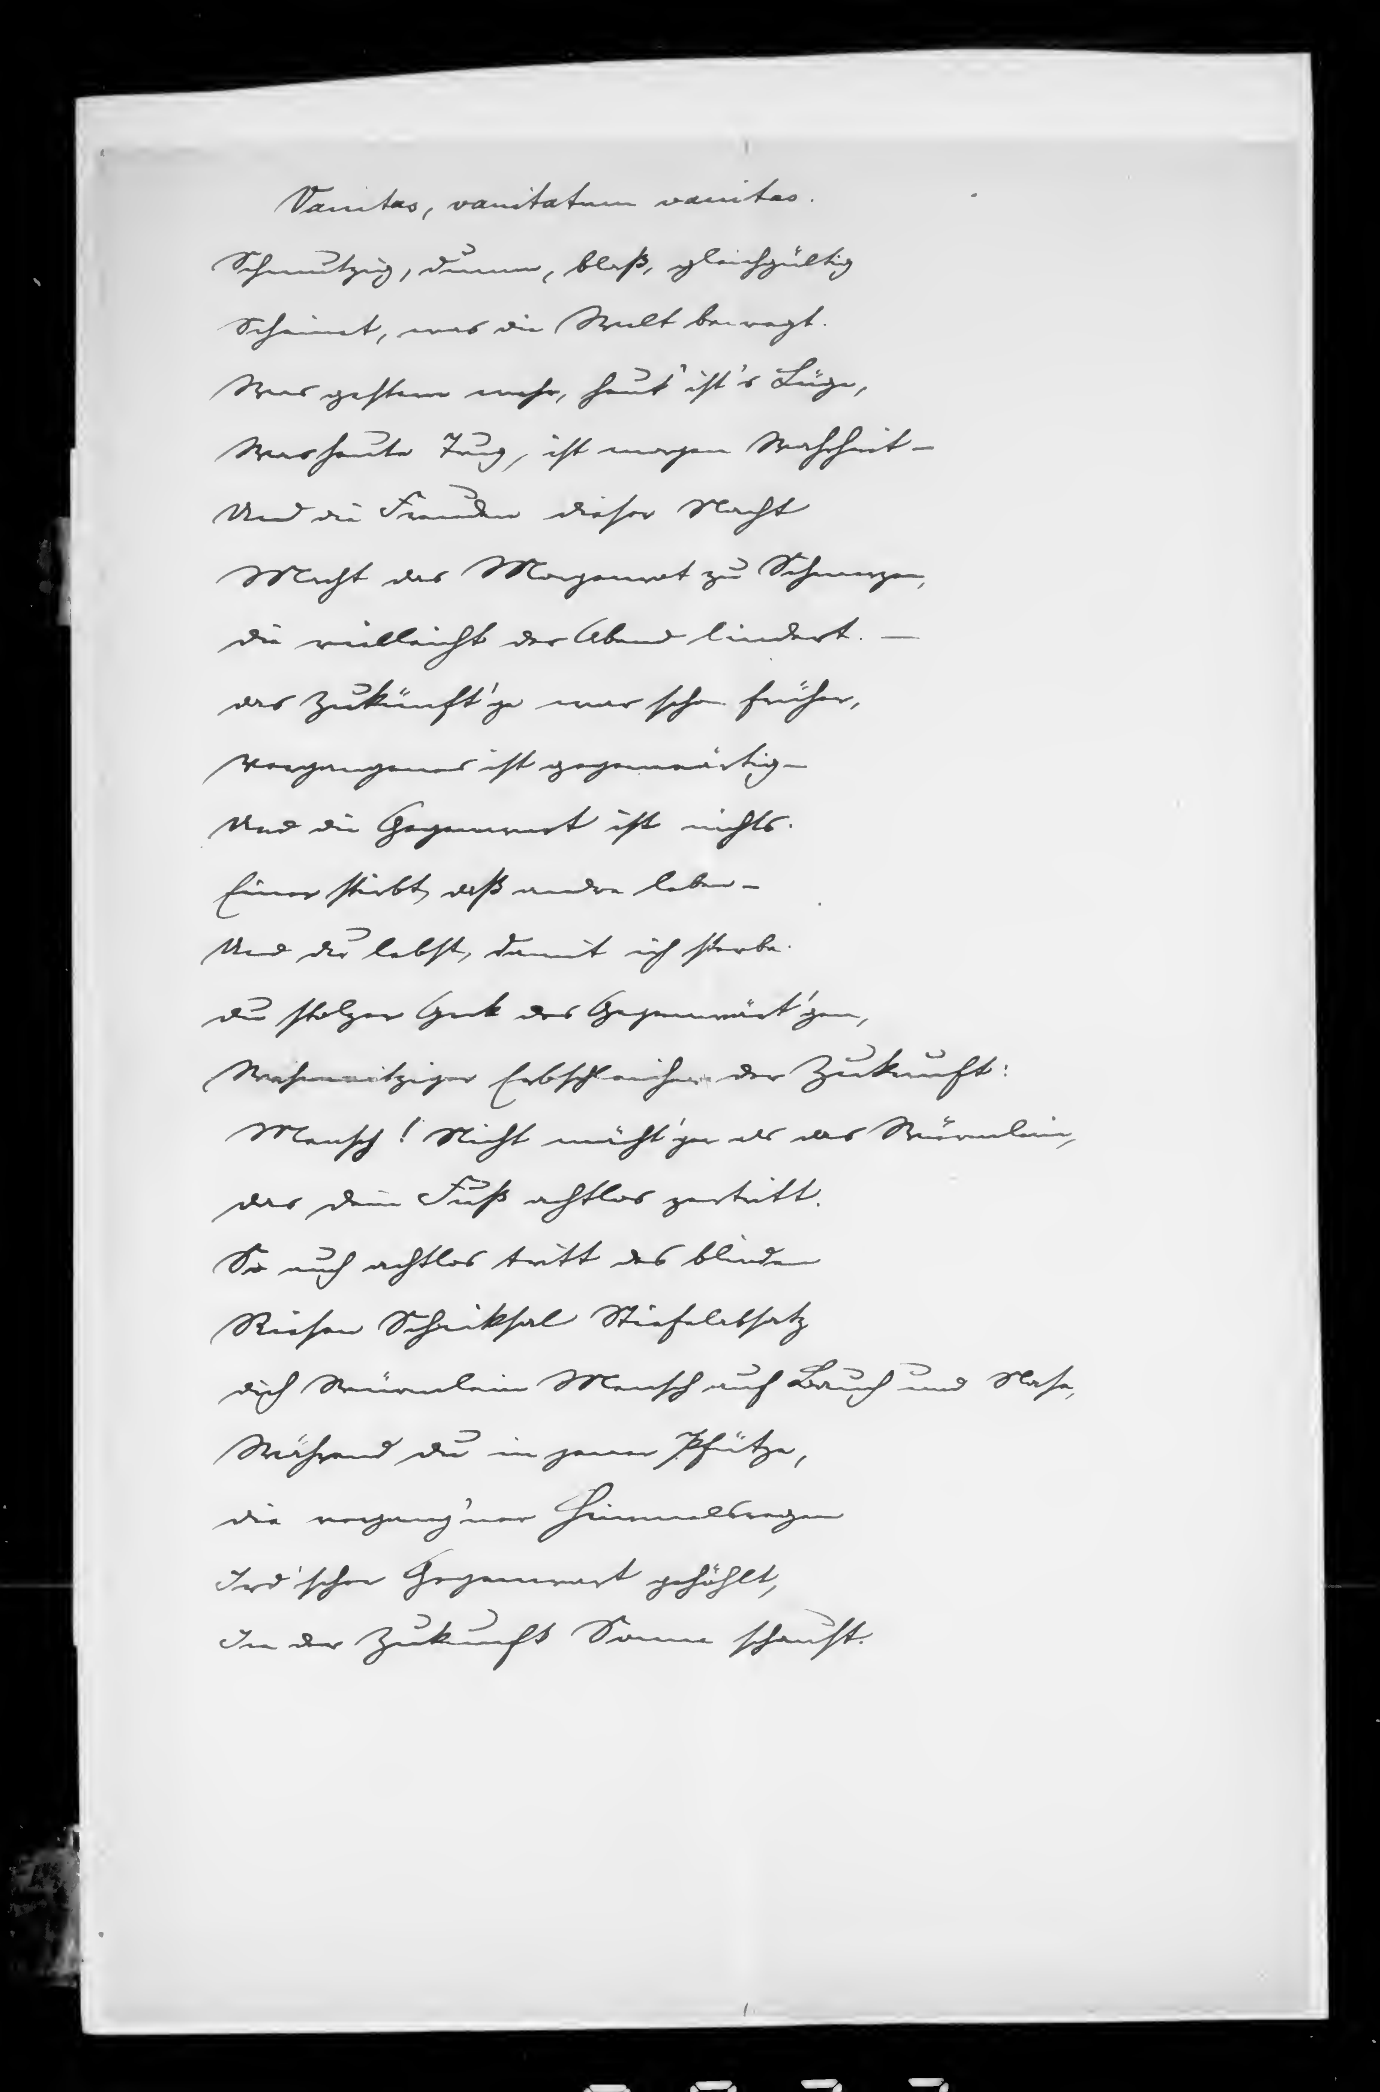 Vanitas, vanitatum vanitas.
Schmutzig, dumm, blaß, gleichgültig
Scheinet, was die Welt bewegt.
Was gestern wahr, heut' ist's Lüge,
Was heute Trug, ist morgen Wahrheit –
Und die Freuden dieser Nacht
Macht das Morgenrot zu Schmerzen,
die vielleicht der Abend lindert. –
das Zukünft'ge war schon früher,
Vergangenes ist gegenwärtig –
Und die Gegenwart ist nichts.
Einer stirbt, daß andre leben –
Und du lebst, damit ich sterbe.
du stolzer Geck des Gegenwärt'gen,
Wahnwitziger Erbschleicher der Zukunft:
Mensch! Nicht mächt'ger als das Würmlein,
das dein Fuß achtlos zertritt.
So auch achtlos tritt des blinden
Riesen Schicksal Stiefelabsatz
dich Würmlein Mensch auf Bauch und Nase,
Während du in jener Pfütze,
die vergang'ner Himmelsregen
Ird'scher Gegenwart gehöhlt,
In der Zukunft Sonne schaust.